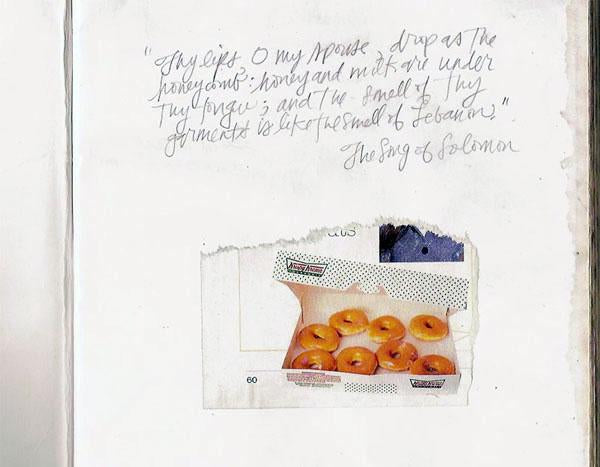 "Thy lips, O my spouse, drop as the
honeycomb: honey and milk are under
thy tongue; and the smell of thy
garments is like the smell of Lebanon."
The Song of Solomon
Krispy Kreme
60
Krispy Kreme